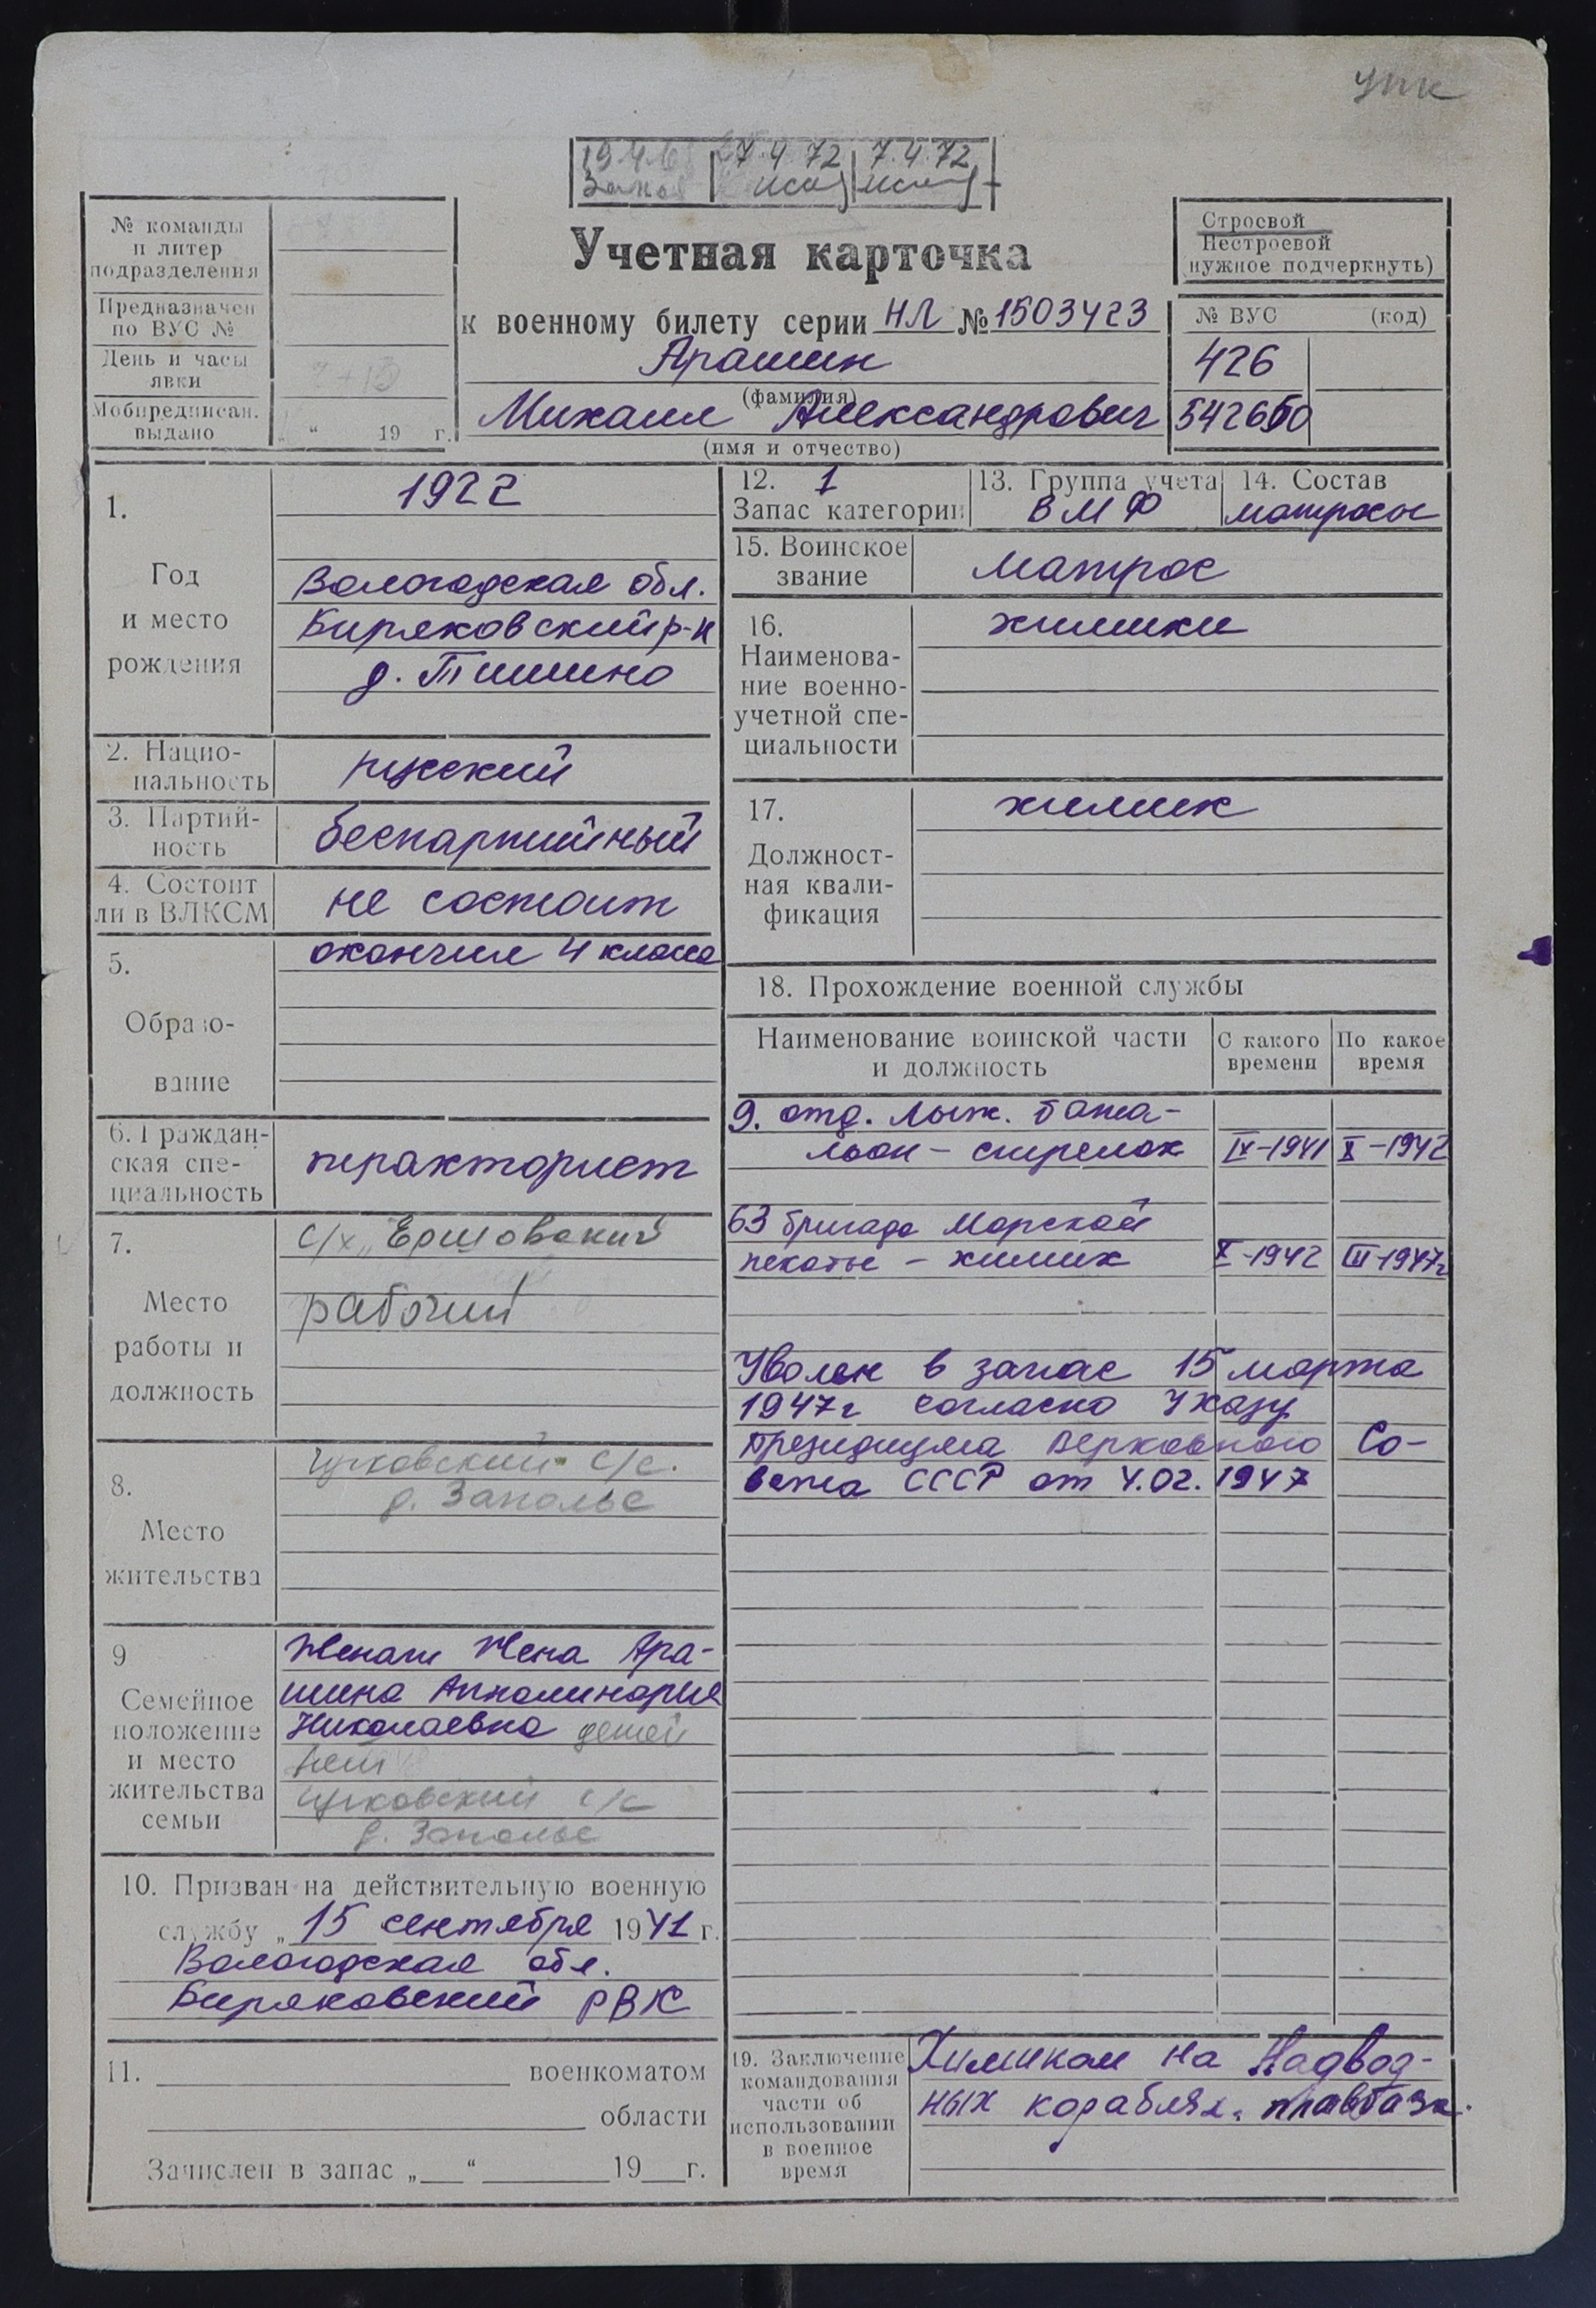 упк
19.4.68 27.4 72 7.4.72
Учетная карточка
к военному билету серии НЛ № 1503423
Арашин
(фамилия)
Михаил Александрович
(имя и отчество)
№ команды
и литер
подразделения
Предназначен
по ВУС №
День и часы
явки
Мобпредписан.
выдано „ “ 19 г.
Строевой
Нестроевой
(нужное подчеркнуть)
№ ВУС (код)
426
542650
1.
Год
и место
рождения
1922
Вологодская обл.
Биряковский р-н
д. Тишино
2. Нацио-
нальность
русский
3. Партий-
ность
беспартийный
4. Состоит
ли в ВЛКСМ
не состоит
5.
Образо-
вание
окончил 4 класса
6. Граждан-
ская спе-
циальность
тракторист
7.
Место
работы и
должность
с/х „Ершовский
рабочий
8.
Место
жительства
Чучковский с/с.
д. Заполье
9
Семейное
положение
и место
жительства
семьи
Женат Жена Ара-
шина Апполинария
Николаевна детей
нет
Чучковский с/с
д. Заполье
10. Призван на действительную военную
службу „15 сентября 1941 г.
Вологодская обл.
Биряковский РВК
11. военкоматом
области
Зачислен в запас „ “ 19 г.
12. 1
Запас категории
13. Группа учета
ВМФ
14. Состав
матросы
15. Воинское
звание
матрос
16.
Наименова-
ние военно-
учетной спе-
циальности
химики
17.
Должност-
ная квали-
фикация
химик
18. Прохождение военной службы
Наименование воинской части
и должность
С какого
времени
По какое
время
9. отд. лыж. бата-
льон – стрелок IX-1941 X-1942
63 бригада Морской
пехоты – химик X-1942 III-1947г
Уволен в запас 15 марта
1947г согласно Указу
Президиума Верховного Со-
вета СССР от 4.02.1947
19. Заключение
командования
части об
использовании
в военное
время
Химиком на Надвод-
ных кораблях. плавбазы.